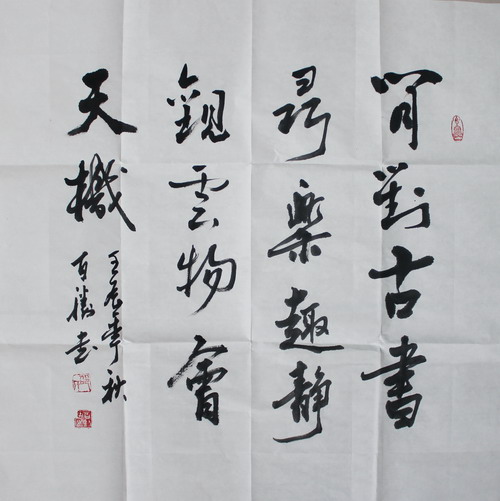 閒對古書
尋樂趣靜
觀雲物會
天機
壬辰年秋
百勝書